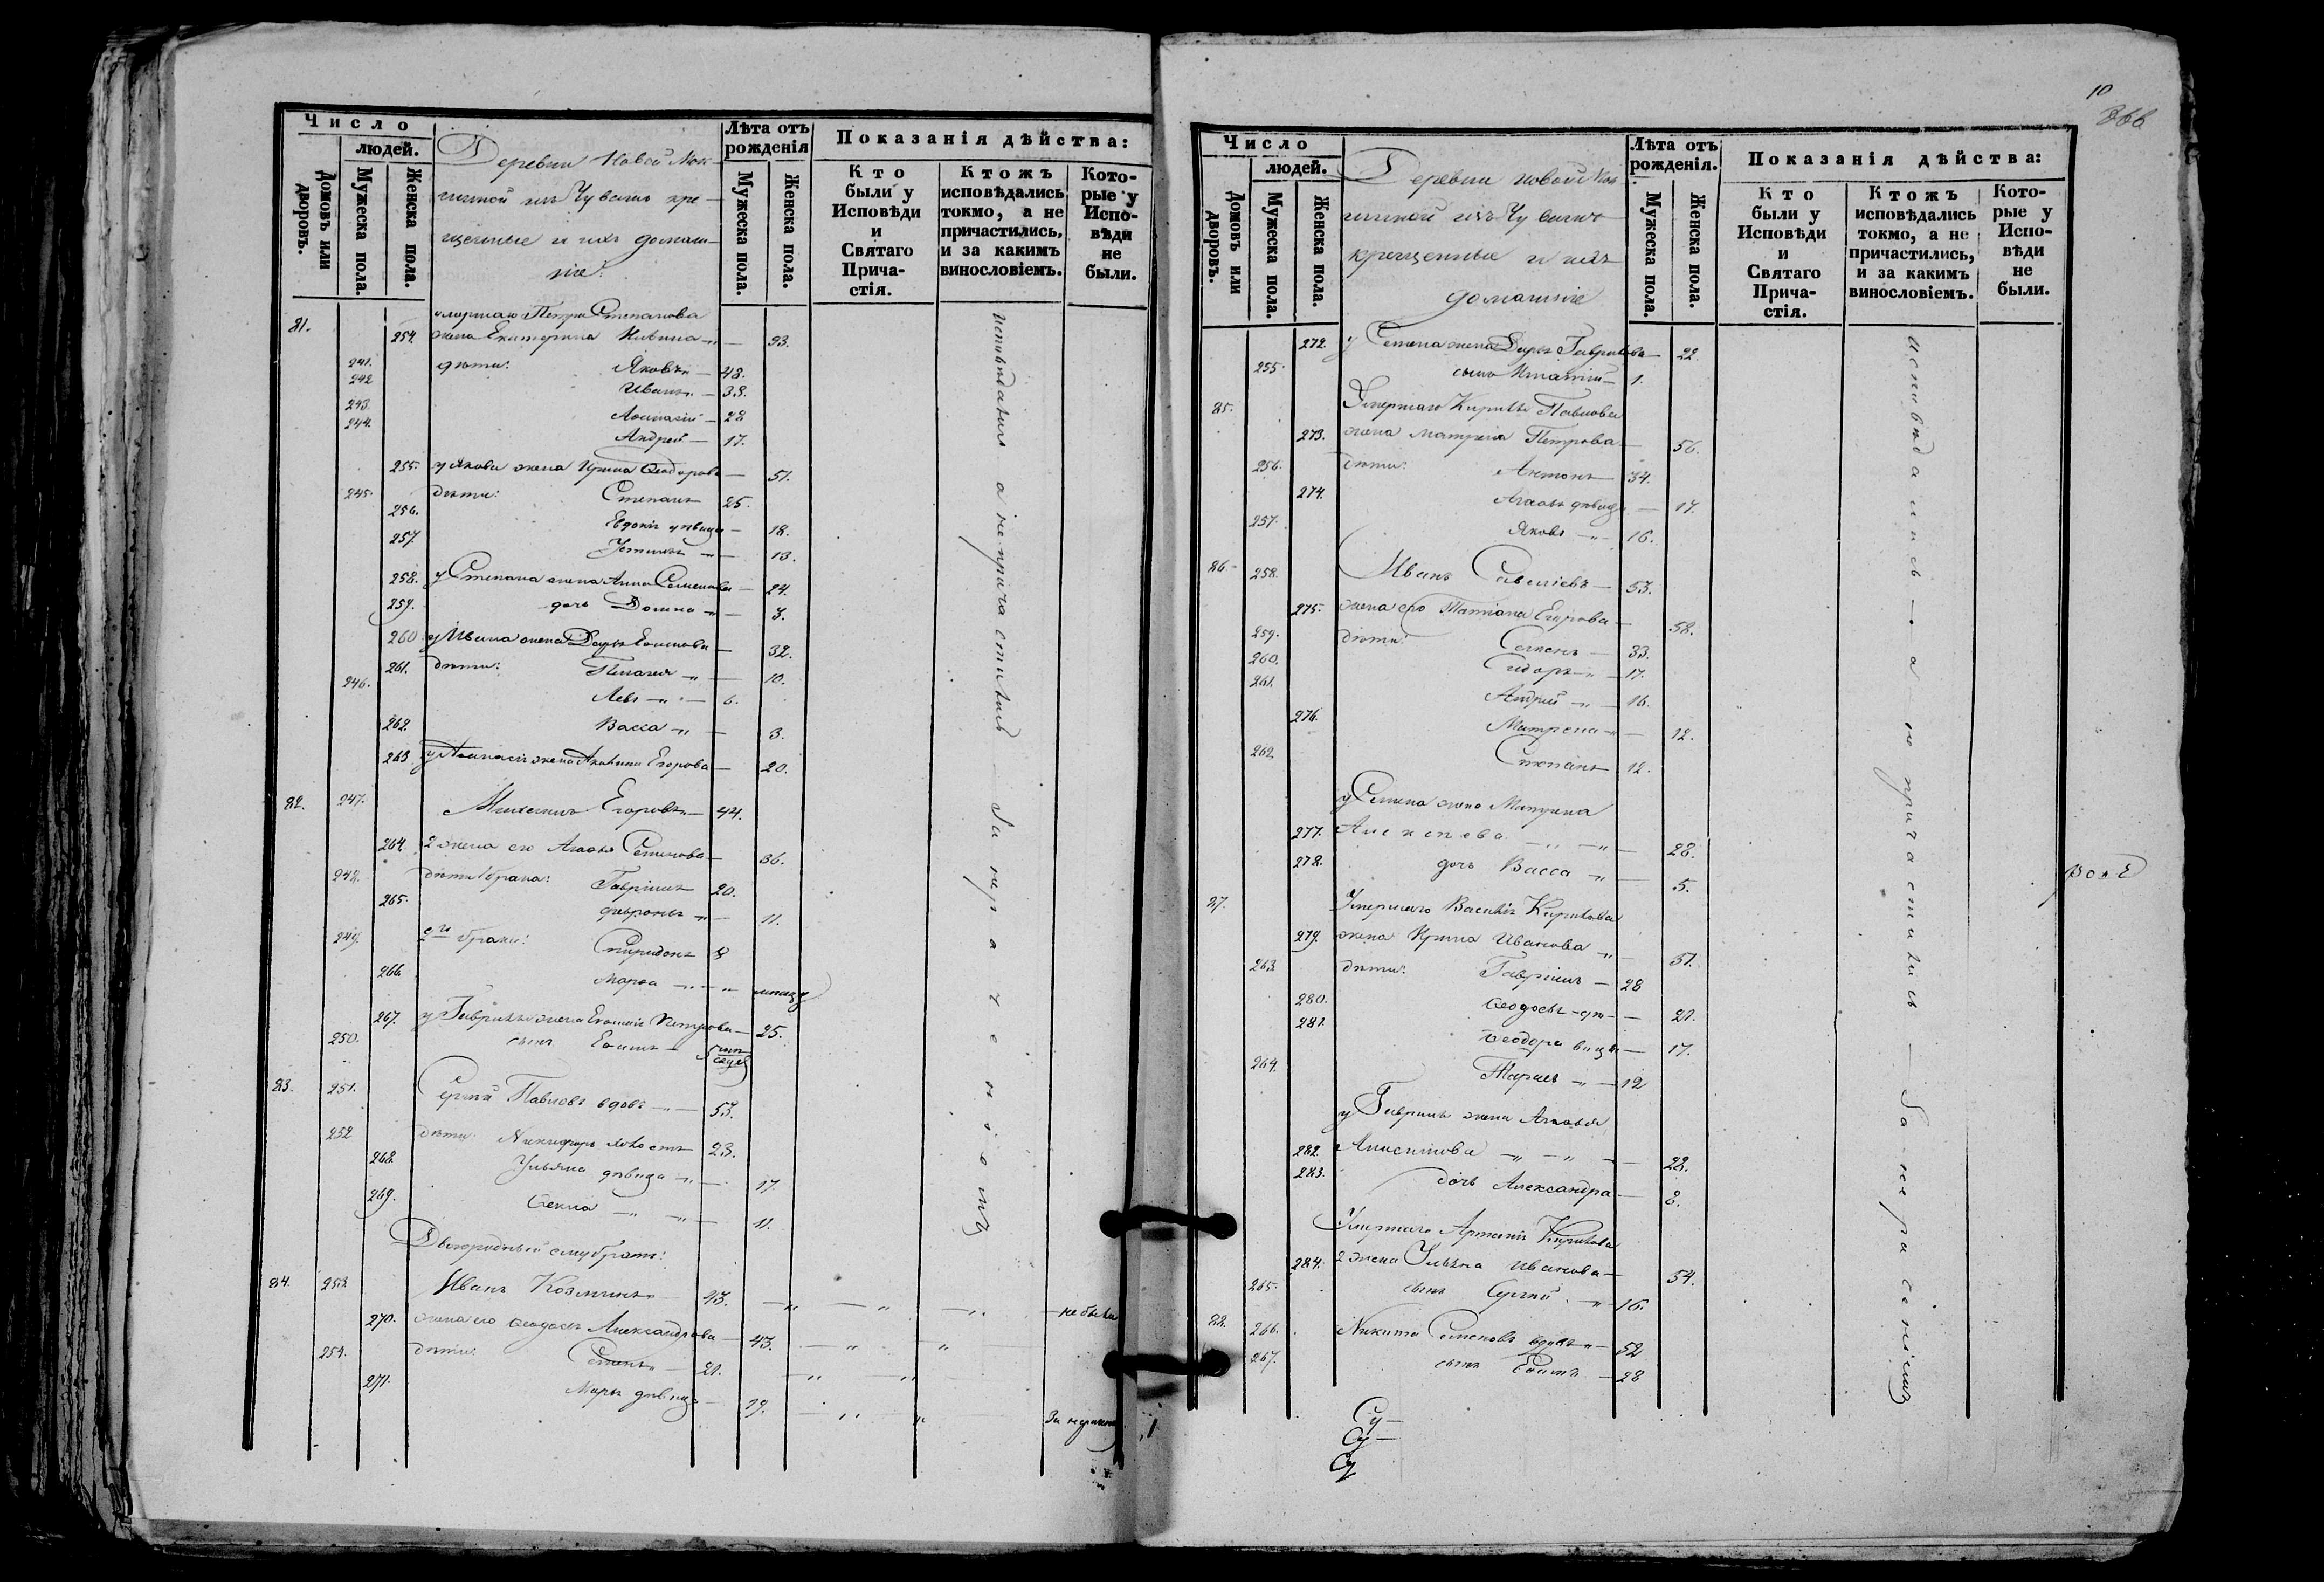 Число
людей.
Домовъ или дворовъ.
Мужеска пола.
Женска пола.
Деревни Новой
из Чувашъ кре-
щенные и ихъ домаш-
ніе:
Лѣта отъ рожденія
Мужеска пола.
Женска пола.
Показанія дѣйства:
Кто были у Исповѣди и Святаго Прича-стія.
Ктожъ исповѣдались токмо, а не причастились, и за какимъ винословіемъ.
Кото-рые у Испо-вѣди не были.
81. умершаго Петра Степанова
254. жена Екатерина 93.
241. дѣти: Яковъ 48.
242 Иванъ 38.
243. Аѳанасій 28
244. Андрей 17.
255. у Якова жена Ирина Ѳеодорова 51.
245. дѣти: Степанъ 25.
256. Евдокія дѣвица 18.
257. 13.
258. у Степана жена Анна Семенова 24.
259. дочь Домна 3.
260 у Ивана жена Дарья 32.
261. дѣти: Пелагея 10.
246. Левъ 6.
262. Васса 3.
263 у Аѳанасія жена Акилина Егорова 20.
82. 247. Егоровъ 44.
264. 2 жена его Агаѳья Семенова 36.
248. дѣти 1 брака: Гавріилъ 20.
265. 11.
249. 2го брака: Спиридонъ 8
266. Марѳа
267. у Гавріила жена Петрова 25.
250. сынъ Ефимъ
83. 251. Сергѣй Павловъ вдовъ 53.
252 дѣти: Никифоръ холостъ 23.
268. Ульяна дѣвица 17.
269. Ѳекла 11.
Двоюродный ему братъ:
84. 253. Иванъ Козминъ 43. не были
270. жена его Ѳеодосья Александрова 43.
254. дѣти: Семенъ 21.
271. Марья дѣвица 19. За
исповѣдались а не причастились за нерачениіомъ
10
366
Число
людей.
Домовъ или дворовъ.
Мужеска пола.
Женска пола.
Деревни новой
изъ Чувашъ
крещенные и ихъ
домашніе
Лѣта отъ рожденія.
Мужеска пола.
Женска пола.
Показанія дѣйства:
Кто были у Исповѣди и Святаго Прича-стія.
Ктожъ исповѣдались токмо, а не причастились, и за какимъ винословіемъ.
Кото-рые у Испо-вѣди не были.
272. у Семена жена Дарья Гаврилова 22.
255. сынъ Игнатій 1.
85. Умершаго Кирила Павлова
273. жена Матрена Петрова 56.
256. дѣти: Антонъ 34.
274. Агаѳья дѣвица 17.
257. Яковъ 16.
86. 258. Иванъ Савеліевъ 53.
275. жена его Татіана Егорова 58.
259. дѣти: Семенъ 33.
260. Сидоръ 17.
261. Андрей 16.
276. Матрена 12.
262 Степанъ 12.
у Семена жена Матрена
277. Алексѣева 28.
278. дочь Васса 5.
87. Умершаго Василія Кирилова
279. жена Ирина Иванова 51.
263. дѣти: Гавріилъ 28
280. Ѳеодосья дѣ- 21.
281. Ѳеодора вицы 17.
264. Тарасъ 12
у Гавріила жена Агаѳья
282. 28.
283. дочь Александра 8.
Умершаго Кирилова
284. 2 жена Ульяна Иванова 54.
265. сынъ Сергѣй 16.
88. 266. Никита Семеновъ вдовъ 52
267. сынъ Ефимъ 28
исповѣдались а не причастились за нераченіемъ